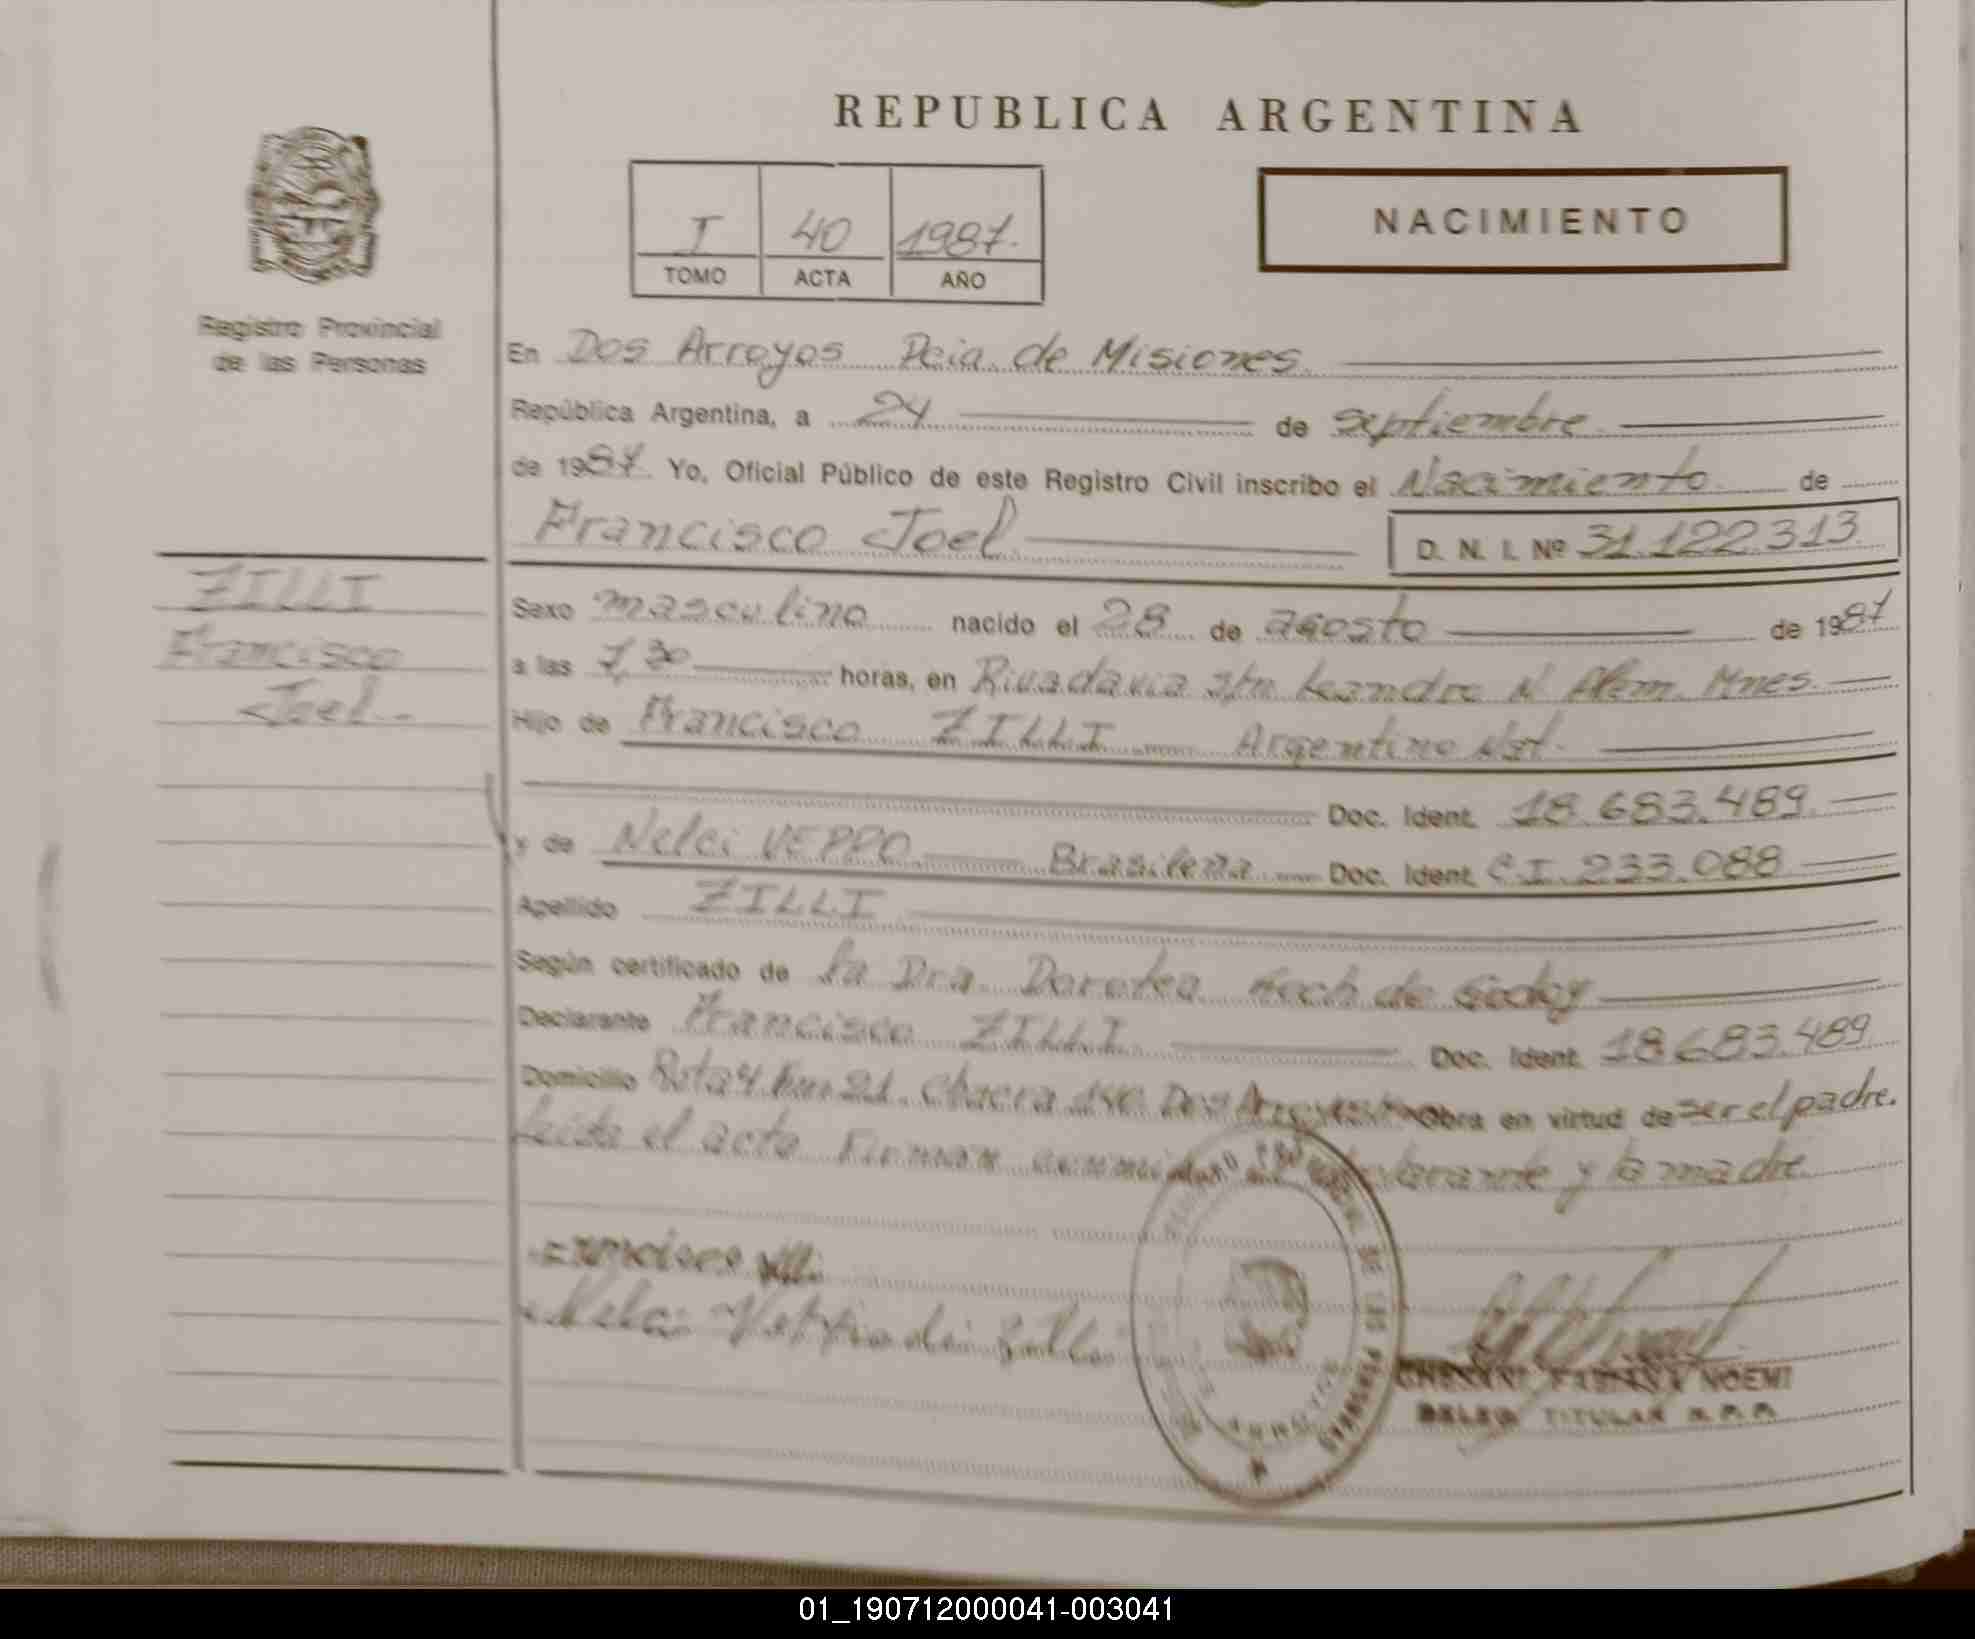 REPUBLICA ARGENTINA
I 40 1987.
TOMO ACTA AÑO
NACIMIENTO
Registro Provincial
de las Personas
En Dos Arroyos Pcia. de Misiones
República Argentina, a 24 de septiembre
de 1987 Yo, Oficial Público de este Registro Civil inscribo el Nacimiento de
Francisco Joel D. N. I. Nº 31.122.313
ZILLI
Francisco
Joel.-
Sexo masculino nacido el 28 de agosto de 1987
a las 7,30 horas, en Rivadavia s/n Leandro N Alem. Mnes.
Hijo de Francisco ZILLI Argentino Nat.
Doc. Ident. 18.683.489
y de Nelci VEPPO Brasileña Doc. Ident. C.I. 233.088
Apellido ZILLI
Según certificado de la Dra. Dorotea de Godoy
Declarante Francisco ZILLI Doc. Ident. 18.683.489
Domicilio Ruta 4. Km 21. Chacra Dos Arroyos Obra en virtud de ser el padre.
Leída el acta Firman conmigo el declarante y la madre.
Francisco Zilli
Nelci de Zilli
FABIANA NOEMI
DELEG TITULAR R.P.P.
01_190712000041-003041